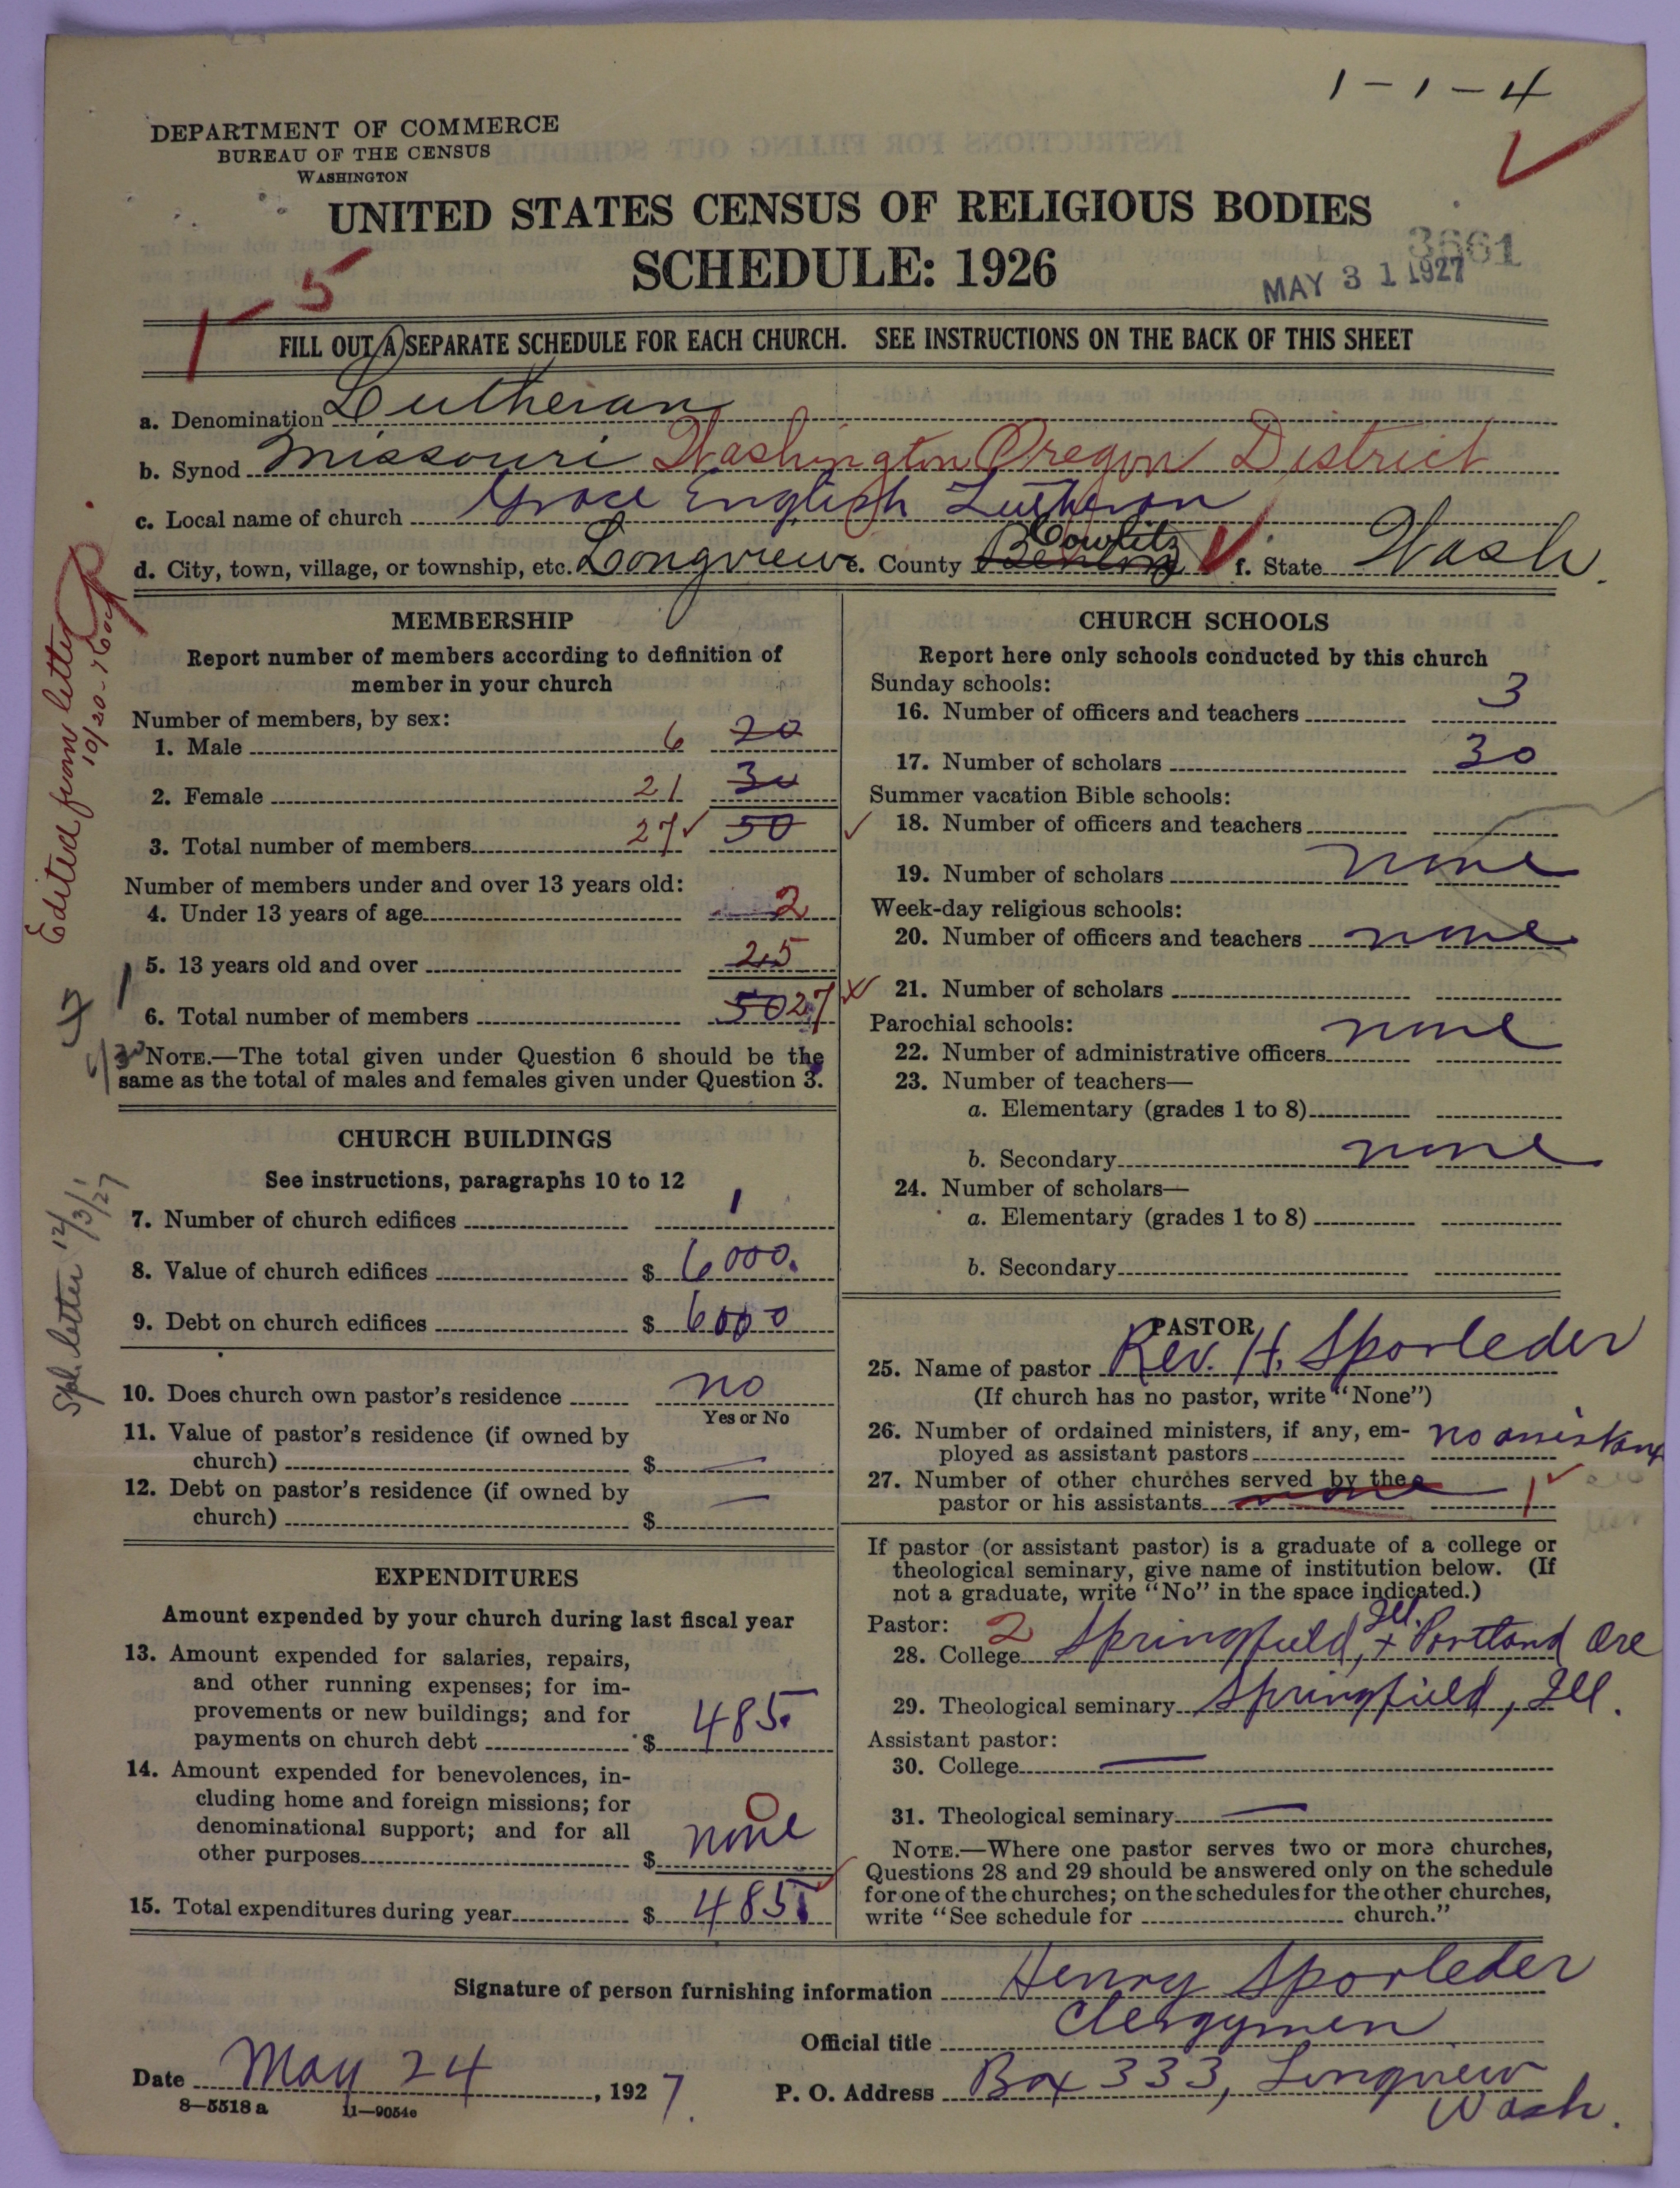 1-1-4
DEPARTMENT OF COMMERCE
BUREAU OF THE CENSUS
WASHINGTON
UNITED STATES CENSUS OF RELIGIOUS BODIES
SCHEDULE: 1926
3661
MAY 31 1927
1-5
FILL OUT A SEPARATE SCHEDULE FOR EACH CHURCH. SEE INSTRUCTIONS ON THE BACK OF THIS SHEET
a. Denomination Lutheran
b. Synod Missouri Washington Oregon District
c. Local name of church Grace English Lutheran
d. City, town, village, or township, etc. Longview e. County Benton Cowlitz f. State Wash.
Edited from letter
10/20-
Spl. letter 12/3/27
MEMBERSHIP
Report number of members according to definition of
member in your church
Number of members, by sex:
1. Male 6 20
2. Female 21 30
3. Total number of members 27 50
Number of members under and over 13 years old:
4. Under 13 years of age 2
5. 13 years old and over 25
6. Total number of members 50 27
NOTE.—The total given under Question 6 should be the
same as the total of males and females given under Question 3.
CHURCH BUILDINGS
See instructions, paragraphs 10 to 12
7. Number of church edifices 1
8. Value of church edifices $ 6000.
9. Debt on church edifices $ 6000
10. Does church own pastor's residence no
Yes or No
11. Value of pastor's residence (if owned by
church) $ —
12. Debt on pastor's residence (if owned by
church) $ —
EXPENDITURES
Amount expended by your church during last fiscal year
13. Amount expended for salaries, repairs,
and other running expenses; for im-
provements or new buildings; and for
payments on church debt $ 485.
14. Amount expended for benevolences, in-
cluding home and foreign missions; for
denominational support; and for all
other purposes $ none 0
15. Total expenditures during year $ 485.
CHURCH SCHOOLS
Report here only schools conducted by this church
Sunday schools:
16. Number of officers and teachers 3
17. Number of scholars 30
Summer vacation Bible schools:
18. Number of officers and teachers
19. Number of scholars none
Week-day religious schools:
20. Number of officers and teachers none
21. Number of scholars
Parochial schools:
22. Number of administrative officers none
23. Number of teachers—
a. Elementary (grades 1 to 8)
b. Secondary none
24. Number of scholars—
a. Elementary (grades 1 to 8)
b. Secondary
PASTOR
25. Name of pastor Rev. H. Sporleder
(If church has no pastor, write "None")
26. Number of ordained ministers, if any, em-
ployed as assistant pastors no assistant
27. Number of other churches served by the
pastor or his assistants none 1
If pastor (or assistant pastor) is a graduate of a college or
theological seminary, give name of institution below. (If
not a graduate, write "No" in the space indicated.)
Pastor:
28. College 2 Springfield, Ill. + Portland Ore
29. Theological seminary Springfield, Ill.
Assistant pastor:
30. College —
31. Theological seminary —
NOTE.—Where one pastor serves two or more churches,
Questions 28 and 29 should be answered only on the schedule
for one of the churches; on the schedules for the other churches,
write "See schedule for church."
Signature of person furnishing information Henry Sporleder
Official title Clergymen
Date May 24, 1927. P. O. Address Box 333, Longview
Wash.
8—5518a 11—9054e